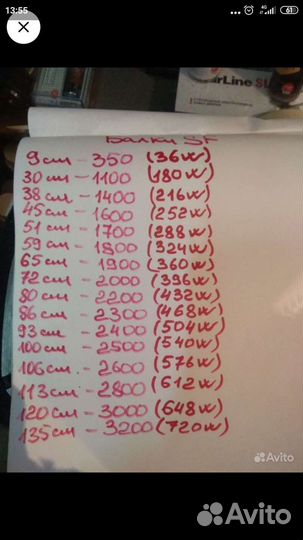 13:55
4G
61
arLine SL
Балки 5F
9см - 350 (36w)
30см - 1100 (180w)
38см - 1400 (216w)
45см - 1600 (252w)
51см - 1700 (288w)
59см - 1800 (324w)
65см - 1900 (360w)
72см - 2000 (396w)
80см - 2200 (432w)
86см - 2300 (468w)
93см - 2400 (504w)
100см - 2500 (540w)
106см. - 2600 (576w)
113см - 2800 (612w)
120см - 3000 (648w)
135см - 3200 (720w)
Avito
Avito